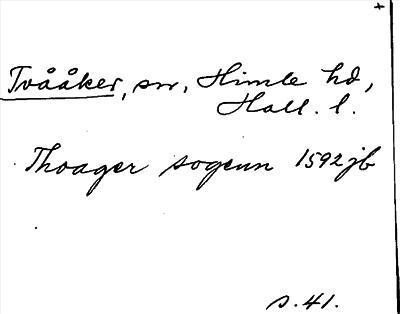 +
Tvååker, sn, Himle hd,
Hall. l.
Thoager sogenn 1592 jb
s. 41.